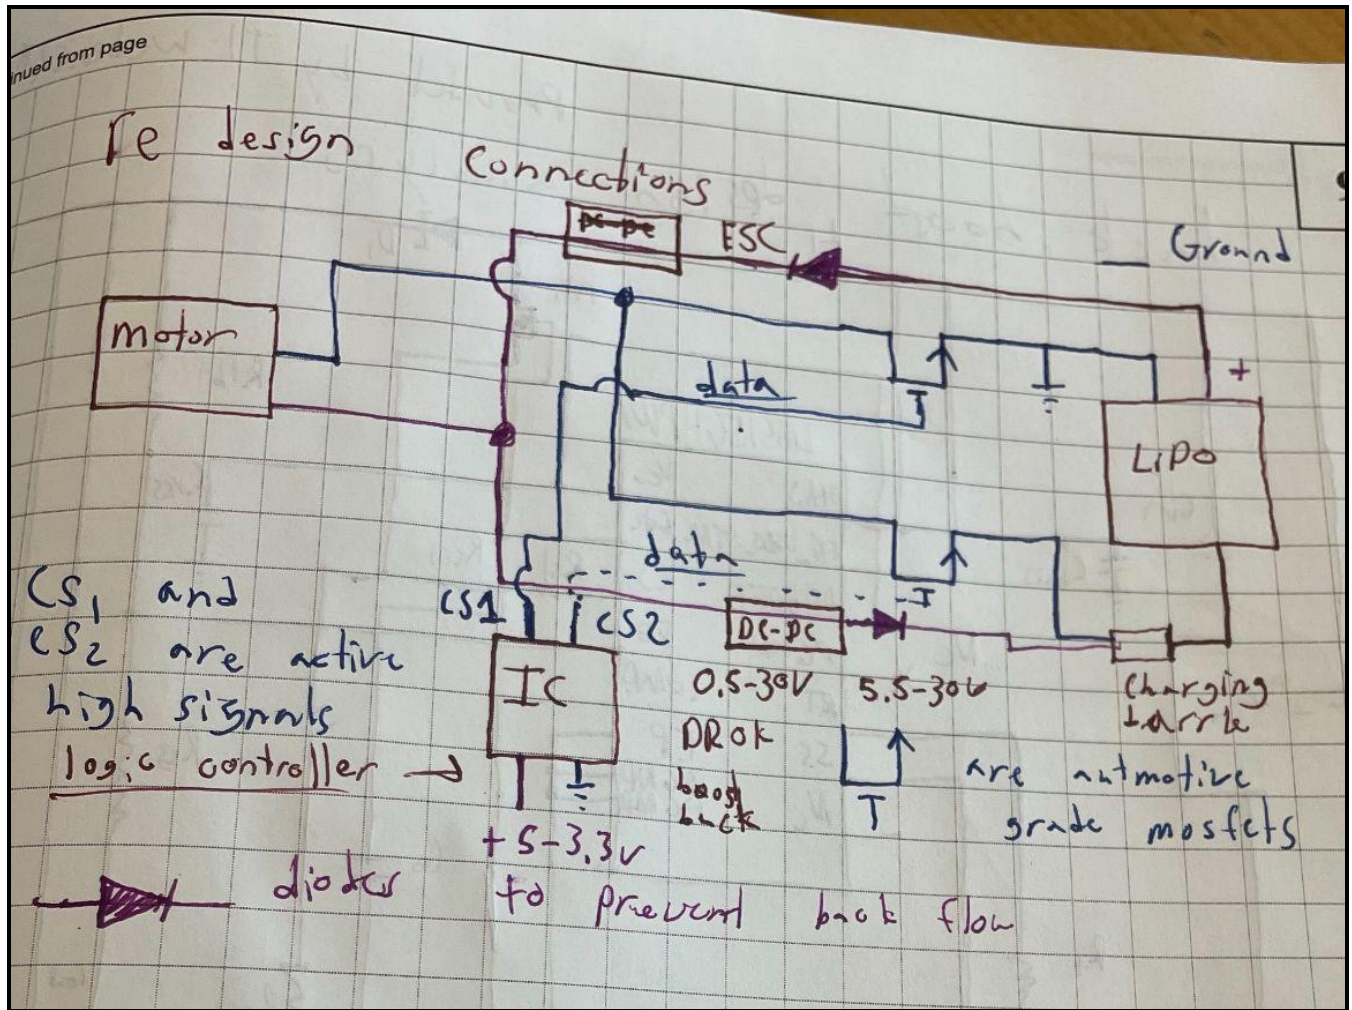 inued from page
re design
Connections
ESC
Ground
motor
data
+
LiPo
data
CS1
CS2
DC-DC
CS1 and
CS2 are active
high signals
logic controller →
IC
0.5-30V
5.5-30V
DROK
boost
buck
Charging
T
are autmotive
grade mosfets
+5-3.3v
diodes to prevent back flow